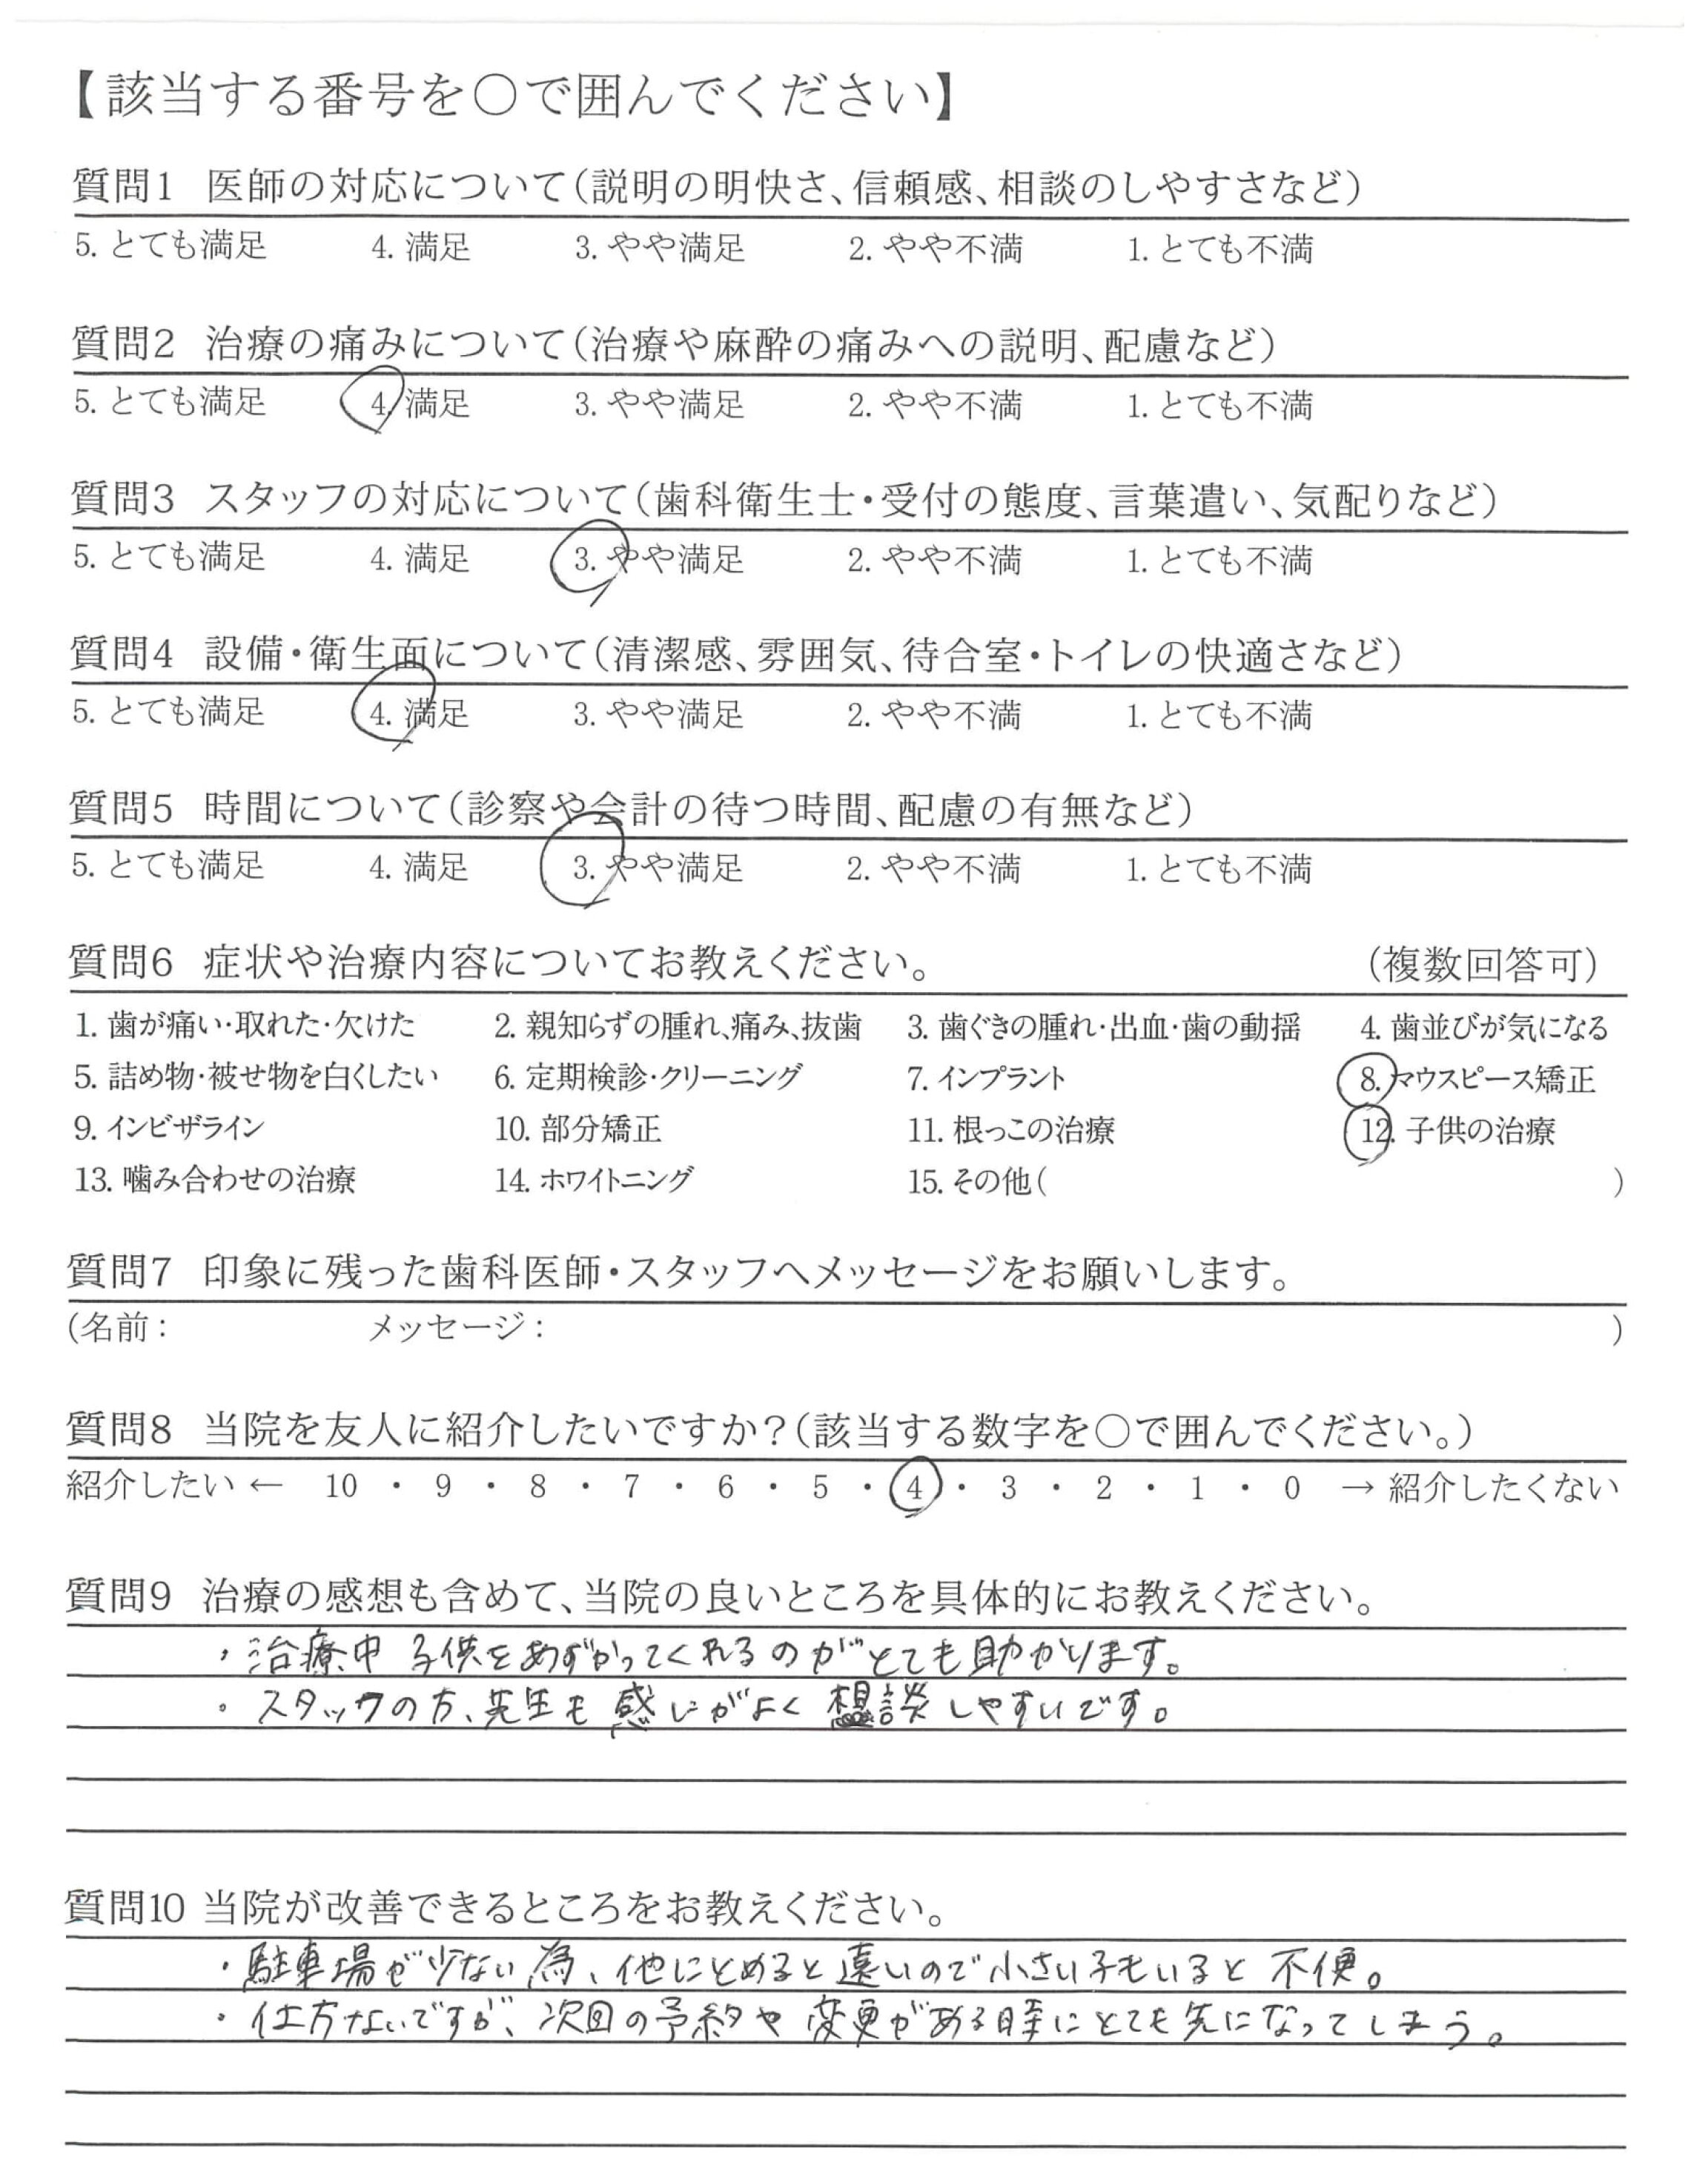 【該当する番号を○で囲んでください】
質問1 医師の対応について(説明の明快さ、信頼感、相談のしやすさなど)
5. とても満足 4. 満足 3. やや満足 2. やや不満 1. とても不満
質問2 治療の痛みについて(治療や麻酔の痛みへの説明、配慮など)
5. とても満足 4. 満足 3. やや満足 2. やや不満 1. とても不満
質問3 スタッフの対応について(歯科衛生士・受付の態度、言葉遣い、気配りなど)
5. とても満足 4. 満足 3. やや満足 2. やや不満 1. とても不満
質問4 設備・衛生面について(清潔感、雰囲気、待合室・トイレの快適さなど)
5. とても満足 4. 満足 3. やや満足 2. やや不満 1. とても不満
質問5 時間について(診察や会計の待つ時間、配慮の有無など)
5. とても満足 4. 満足 3. やや満足 2. やや不満 1. とても不満
質問6 症状や治療内容についてお教えください。 (複数回答可)
1. 歯が痛い・取れた・欠けた 2. 親知らずの腫れ、痛み、抜歯 3. 歯ぐきの腫れ・出血・歯の動揺 4. 歯並びが気になる
5. 詰め物・被せ物を白くしたい 6. 定期検診・クリーニング 7. インプラント 8. マウスピース矯正
9. インビザライン 10. 部分矯正 11. 根っこの治療 12. 子供の治療
13. 噛み合わせの治療 14. ホワイトニング 15. その他( )
質問7 印象に残った歯科医師・スタッフへメッセージをお願いします。
(名前: メッセージ: )
質問8 当院を友人に紹介したいですか?(該当する数字を○で囲んでください。)
紹介したい ← 10 ・ 9 ・ 8 ・ 7 ・ 6 ・ 5 ・ 4 ・ 3 ・ 2 ・ 1 ・ 0 → 紹介したくない
質問9 治療の感想も含めて、当院の良いところを具体的にお教えください。
・治療中 子供をあずかってくれるのがとても助かります。
・スタッフの方、先生も感じがよく 相談しやすいです。
質問10 当院が改善できるところをお教えください。
・駐車場が少ない為、他にとめると遠いので小さい子もいると不便。
・仕方ないですが、次回の予約や変更がある時にとても先になってしまう。